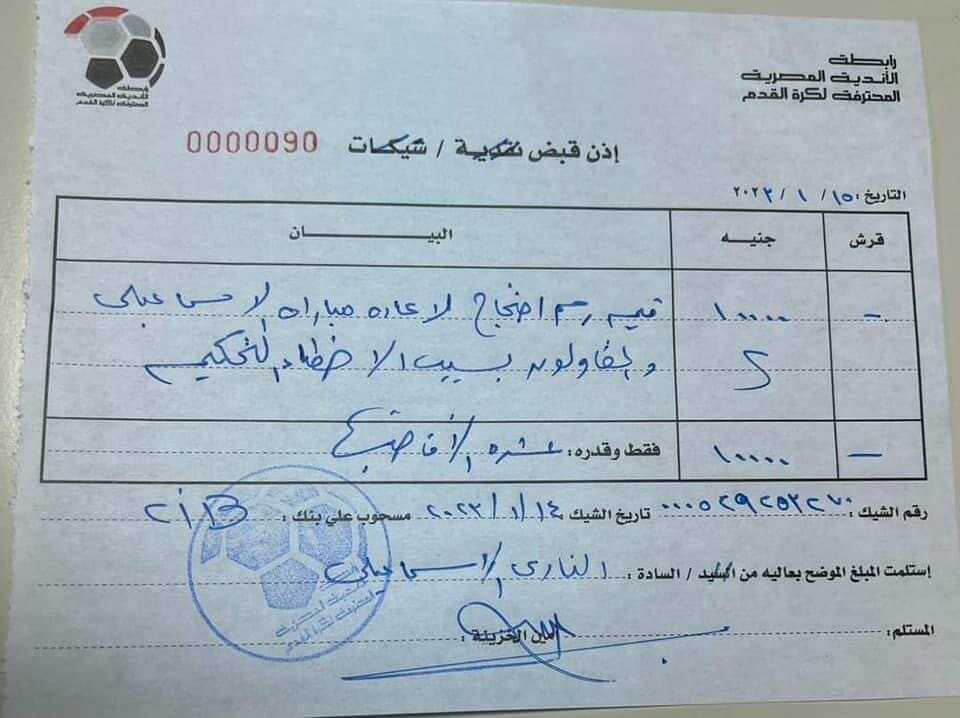 رابطة
الأندية المصرية
المحترفة لكرة القدم
رابطة
الأندية المصرية
المحترفة لكرة القدم
إذن قبض نقدية / شيكات
0000090
التاريخ : ١٥ / ١ / ٢٠٢٣
قرش جنيـه البيـــــان
– ١٠٠٠٠ قيمه رسم احتجاج لاعاده مباراه الاسماعيلى
والمقاولون بسبب الاخطاء التحكيميه
– ١٠٠٠٠ فقط وقدره : عشره الاف
رقم الشيك : ٠٠٠٥٢٩٢٥٣٢٧٠ تاريخ الشيك ١٤ / ١ / ٢٠٢٣ مسحوب علي بنك :
إستلمت المبلغ الموضح بعاليه من السيد / السادة : النادى الاسماعيلى
المستلم : أمين الخزينة :
رابطة
الأندية المصرية
المحترفة لكرة القدم